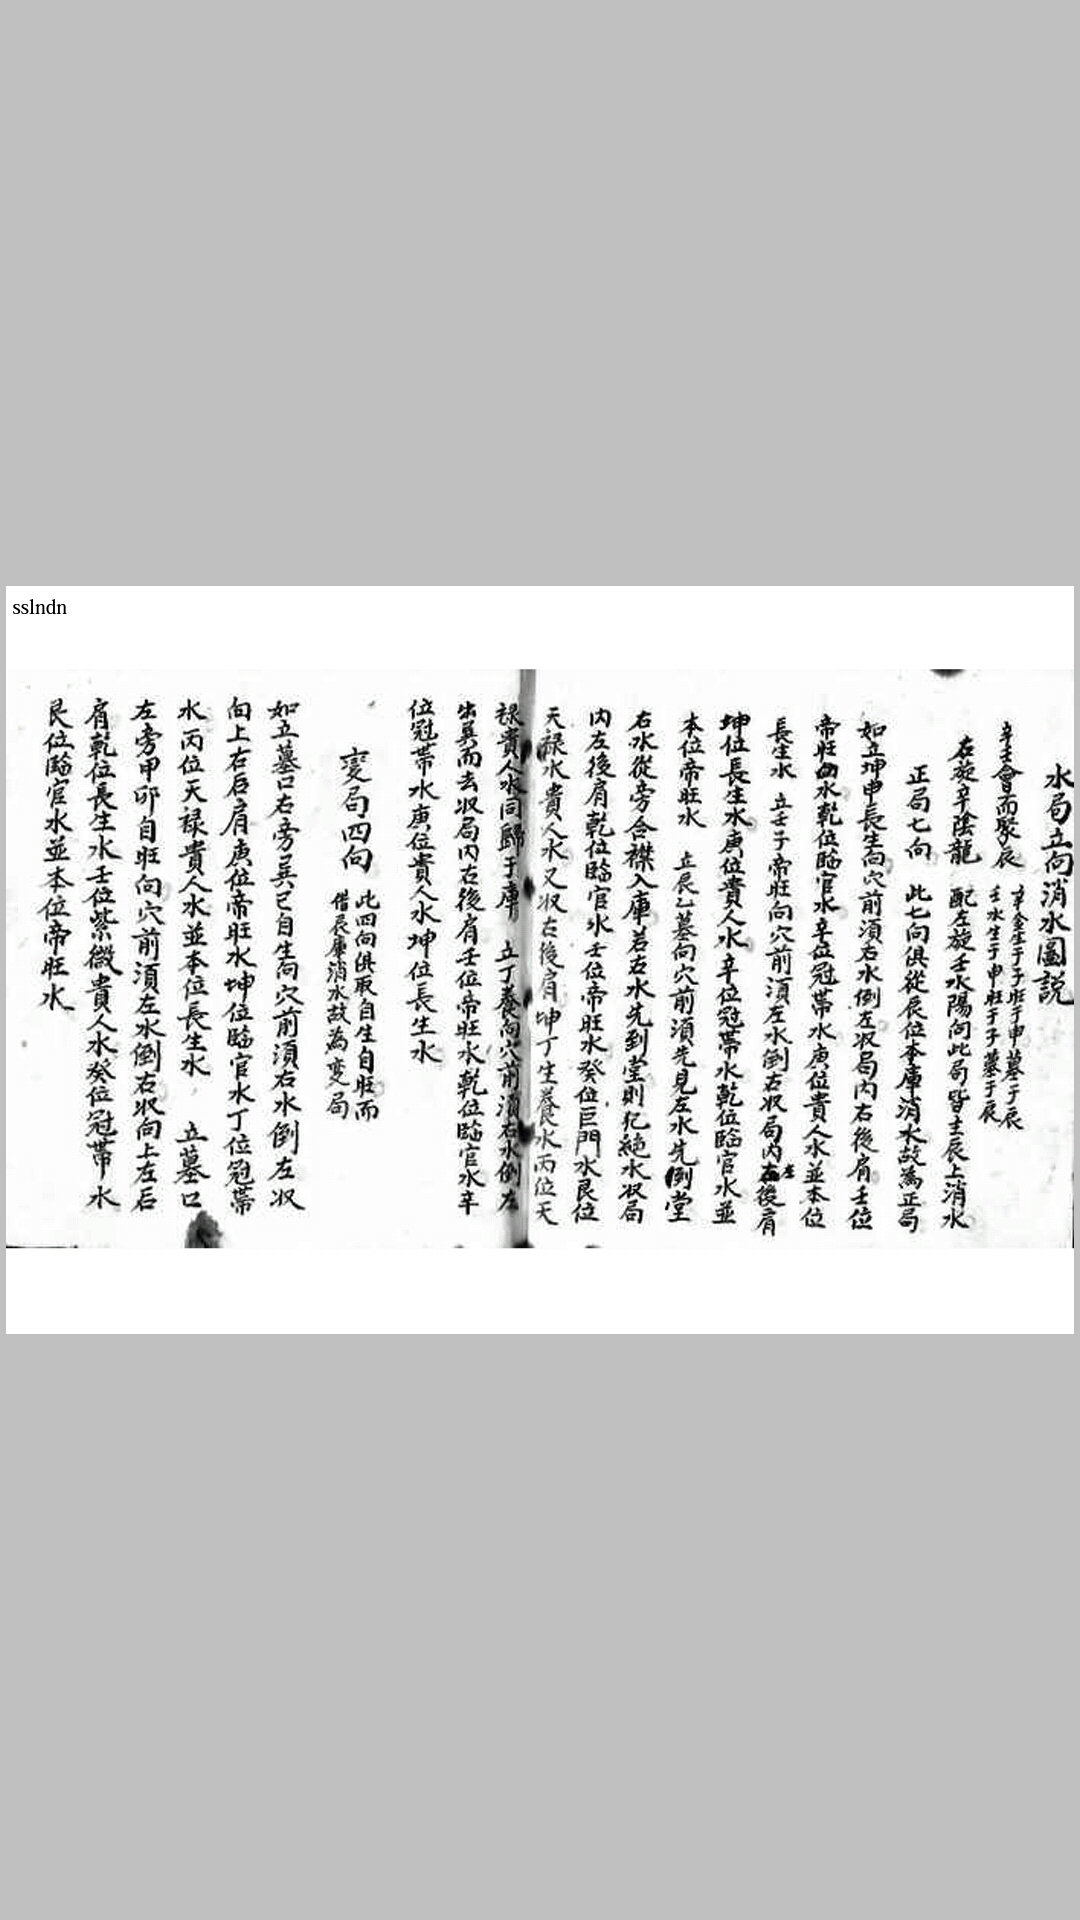 sslndn
水局立向消水圖説
辛壬會而聚辰 辛金生于子旺于申墓于辰
壬水生于申旺于子墓于辰
右旋辛陰龍 配左旋壬水陽向此局皆主辰上消水
正局七向 此七向俱從辰位本庫消水故為正局
如立坤申長生向穴前須右水倒左収局内右後肩壬位
帝旺水乾位臨官水辛位冠帯水庚位貴人水並本位
長生水 立壬子帝旺向穴前須左水倒右収局内左後肩
坤位長生水庚位貴人水辛位冠帯水乾位臨官水並
本位帝旺水 立辰乙墓向穴前須先見左水先倒堂
右水從旁合襟入庫若右水先到堂則犯絶水収局
内左後肩乾位臨官水壬位帝旺水癸位巨門水艮位
天禄水貴人水又収右後肩坤丁生養水丙位天
禄貴人水同歸于庫 立丁養向穴前須右水倒左
出巽而去収局内右後肩壬位帝旺水乾位臨官水辛
位冠帯水庚位貴人水坤位長生水
變局四向 此四向俱取自生自旺而
借辰庫消水故為變局
如立墓口右旁巽巳自生向穴前須右水倒左収
向上右后肩庚位帝旺水坤位臨官水丁位冠帯
水丙位天禄貴人水並本位長生水 立墓口
左旁甲卯自旺向穴前須左水倒右収向上左后
肩乾位長生水壬位紫微貴人水癸位冠帯水
艮位臨官水並本位帝旺水